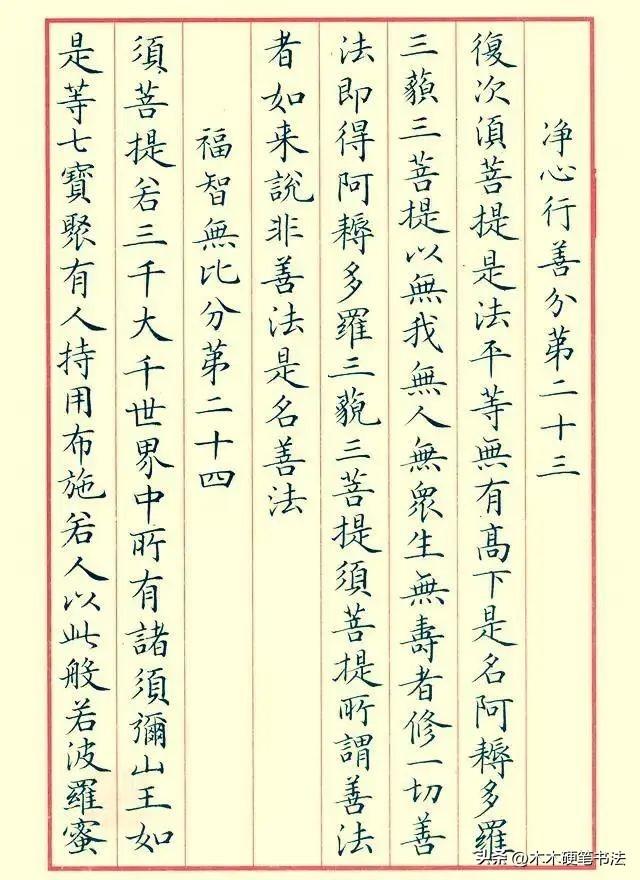 净心行善分第二十三
復次須菩提是法平等無有高下是名阿耨多羅
三藐三菩提以無我無人無眾生無壽者修一切善
法即得阿耨多羅三藐三菩提須菩提所謂善法
者如来說非善法是名善法
福智無比分第二十四
須菩提若三千大千世界中所有諸須彌山王如
是等七寶聚有人持用布施若人以此般若波羅蜜
头条@木木硬笔书法